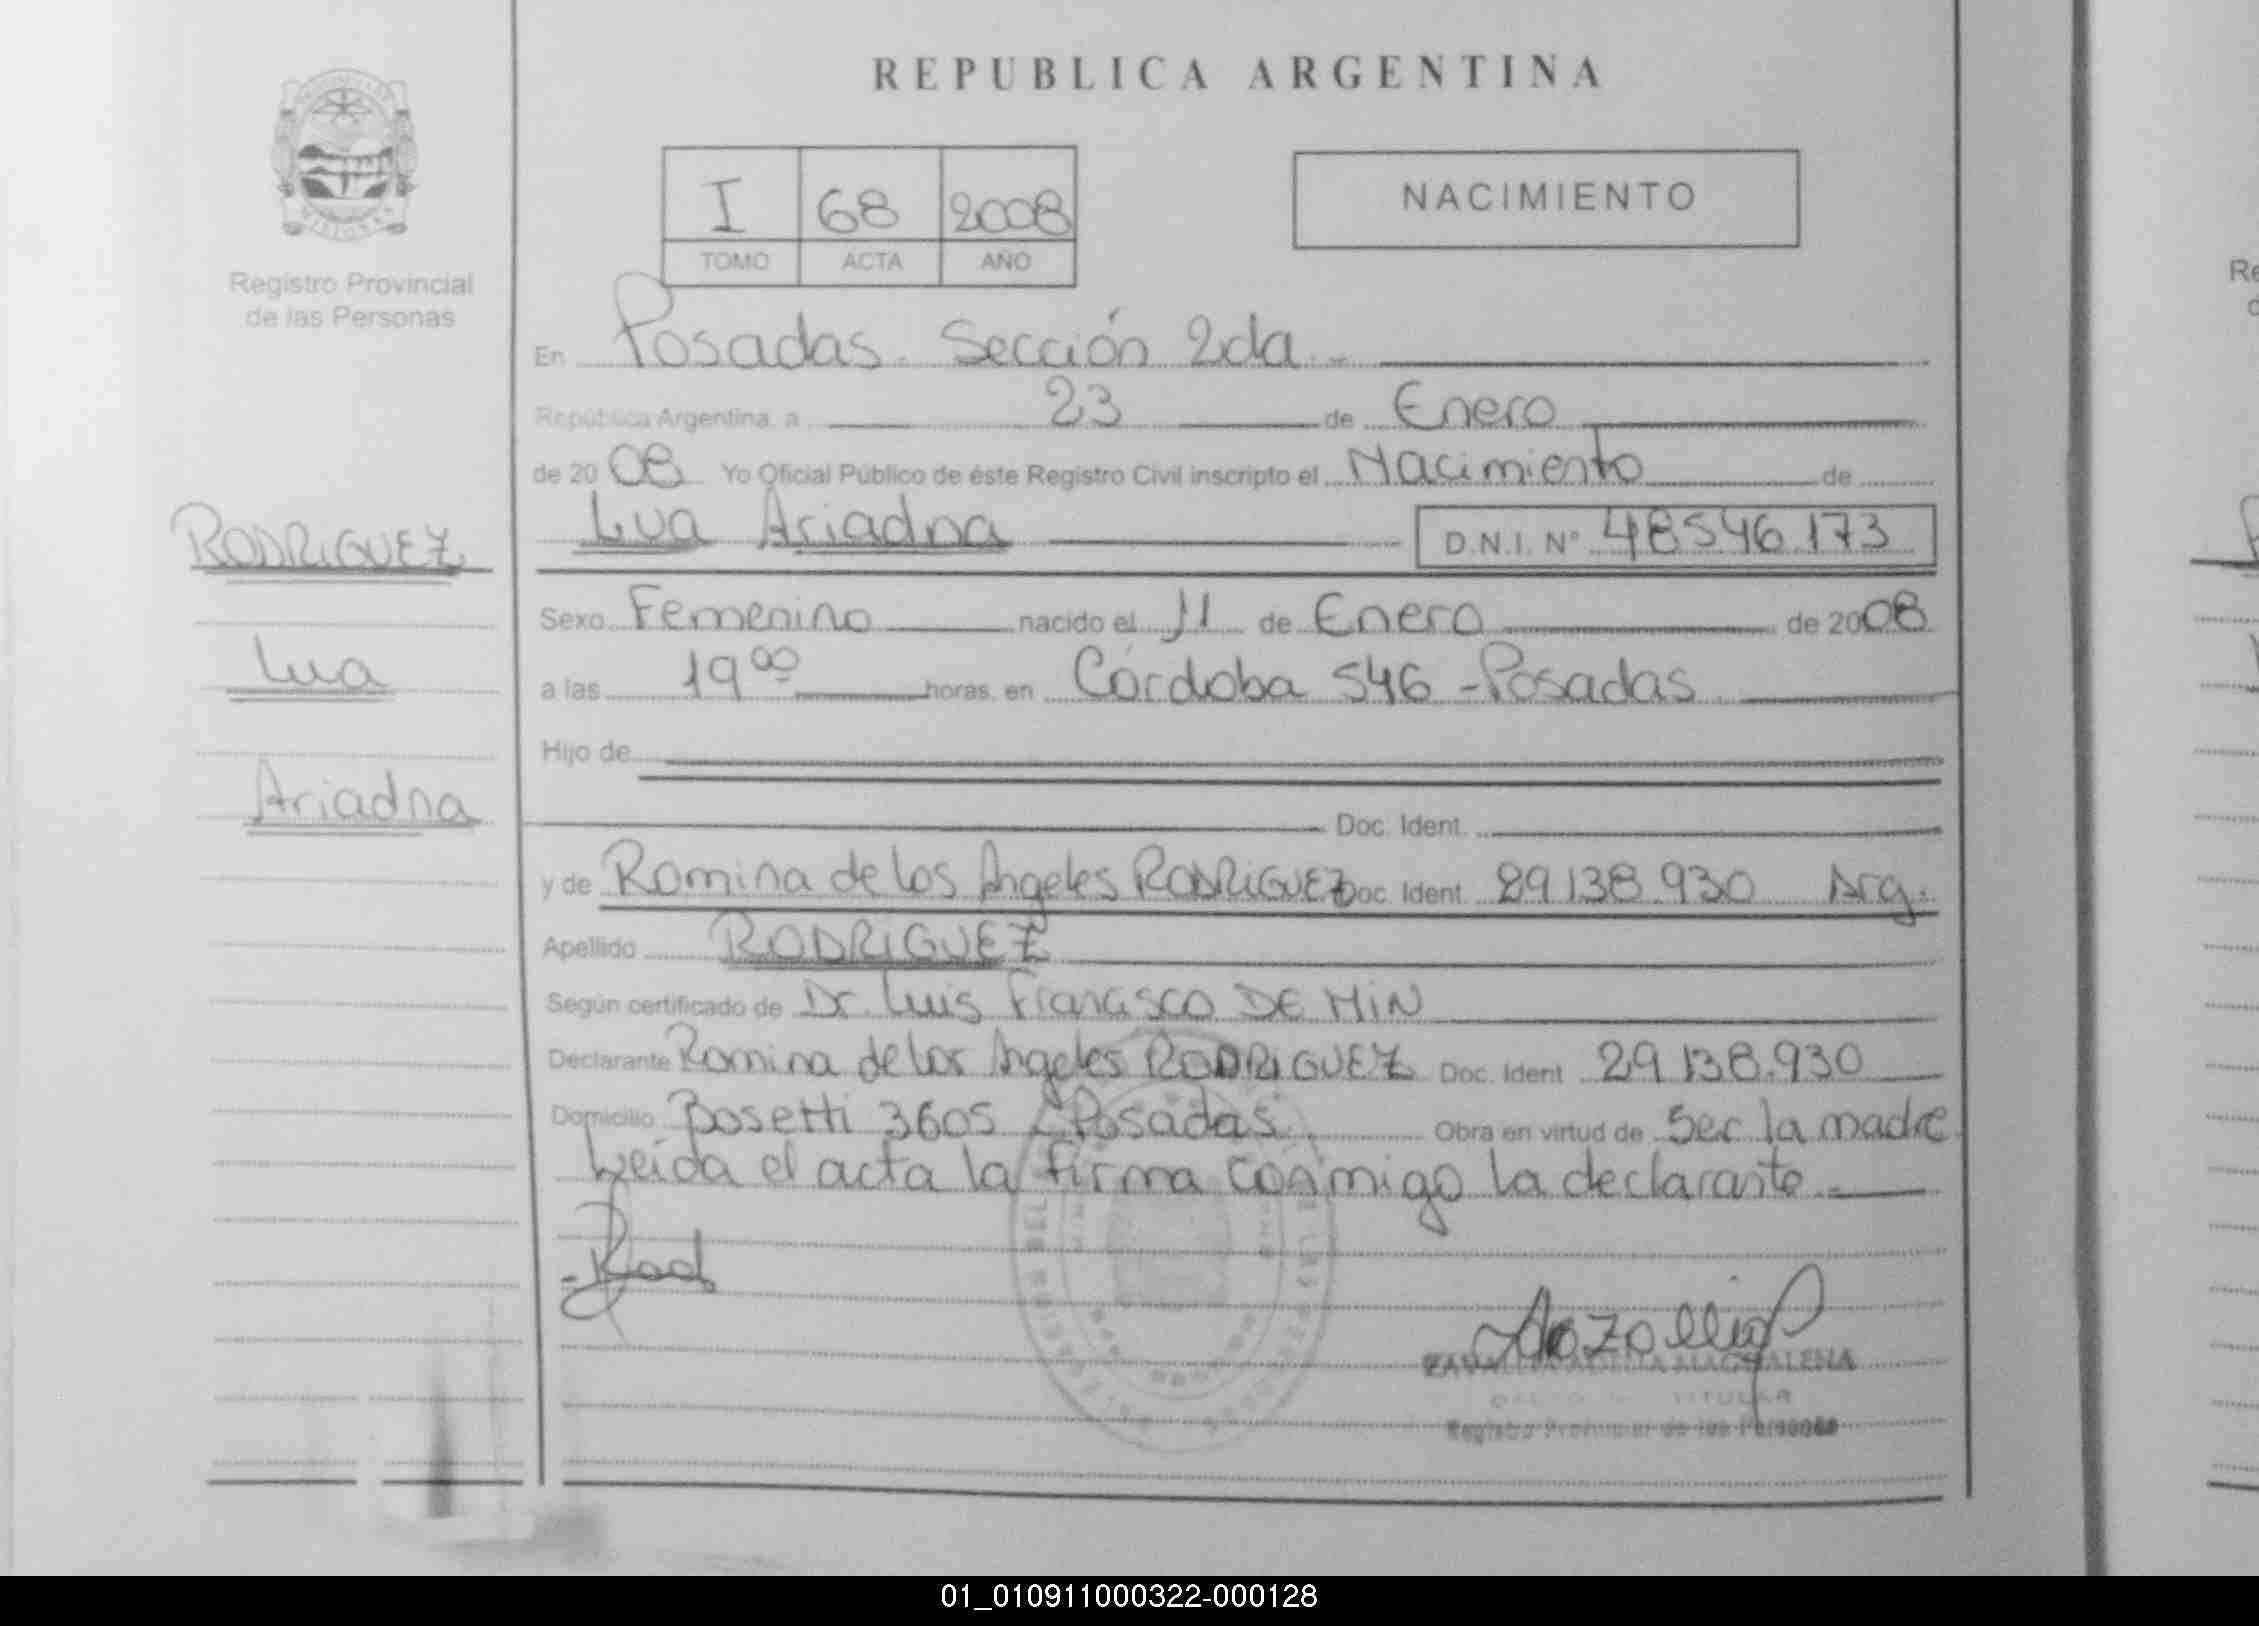 REPUBLICA ARGENTINA
I 68 2008
TOMO ACTA AÑO
NACIMIENTO
MISIONES
Registro Provincial
de las Personas
En Posadas - Sección 2da.-
República Argentina, a 23 de Enero
de 2008 Yo Oficial Público de éste Registro Civil inscripto el Nacimiento de
Lua Ariadna D.N.I. Nº 48546.173
RODRIGUEZ
Lua
Ariadna
Sexo Femenino nacido el 11 de Enero de 2008
a las 19⁰⁰ horas, en Córdoba 546 - Posadas
Hijo de
Doc. Ident.
y de Romina de los Angeles RODRIGUEZ Doc. Ident. 29.138.930 Arg.
Apellido RODRIGUEZ
Según certificado de Dr. Luis Francisco DE MIN
Declarante Romina de los Angeles RODRIGUEZ Doc. Ident. 29.138.930
Domicilio Bosetti 3605 - Posadas Obra en virtud de Ser la madre
Leída el acta la firma conmigo la declarante.-
MAGDALENA
TITULAR
Registro Provincial de las Personas
Re
01_010911000322-000128